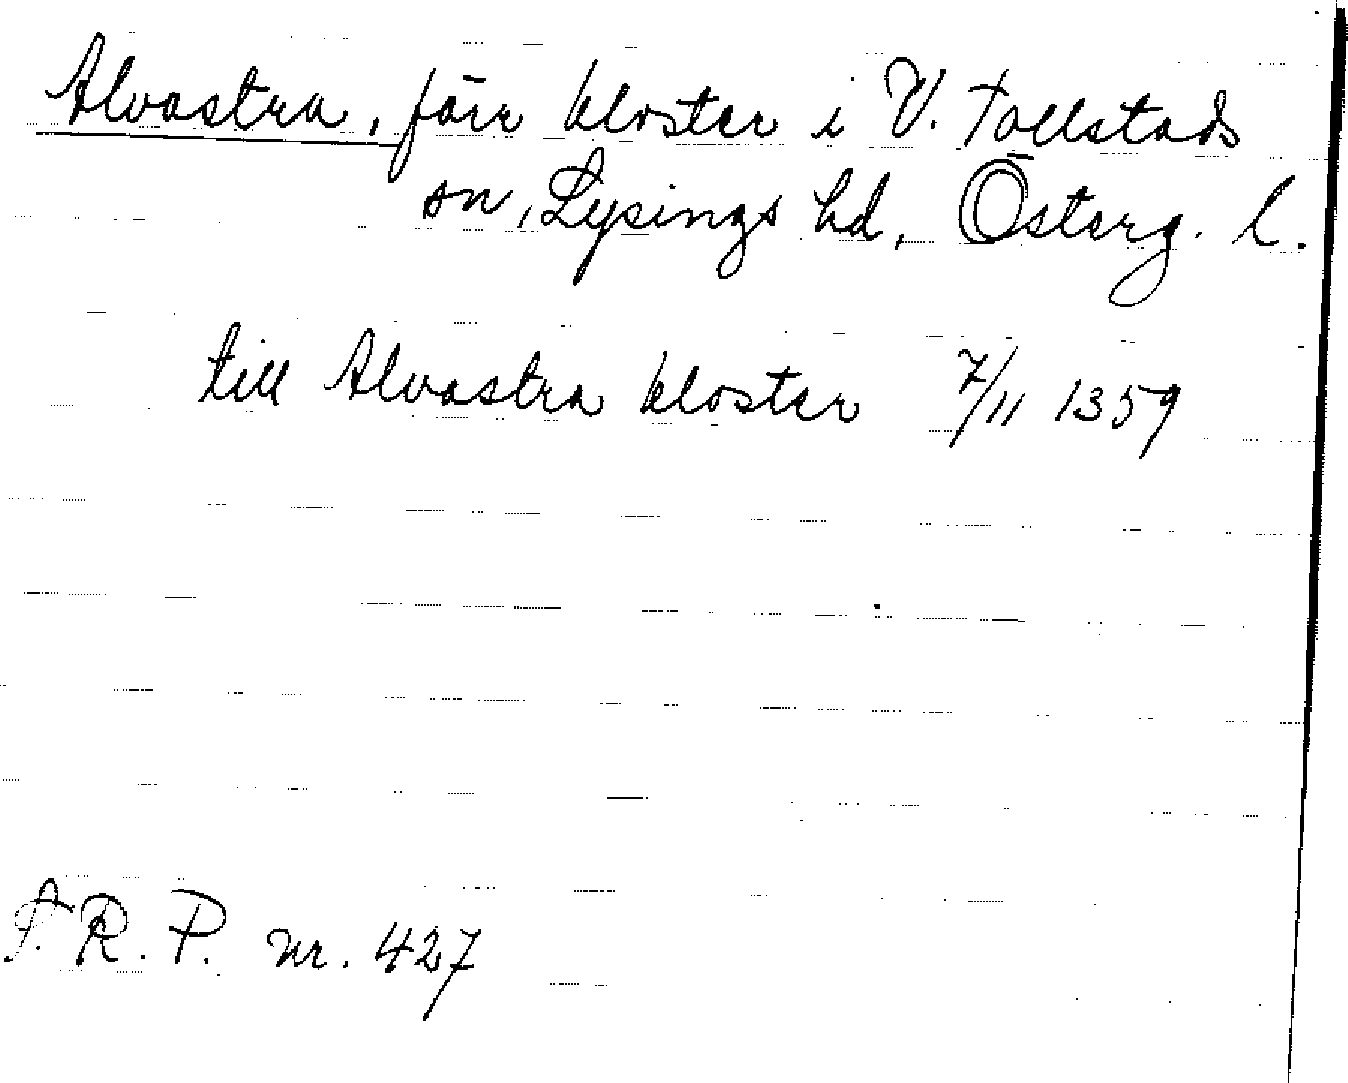 Alvastra, förr kloster i V. Tollstads
sn, Lysings hd, Österg. l.
till Alvastra kloster 7/11 1359
R. P. nr. 427